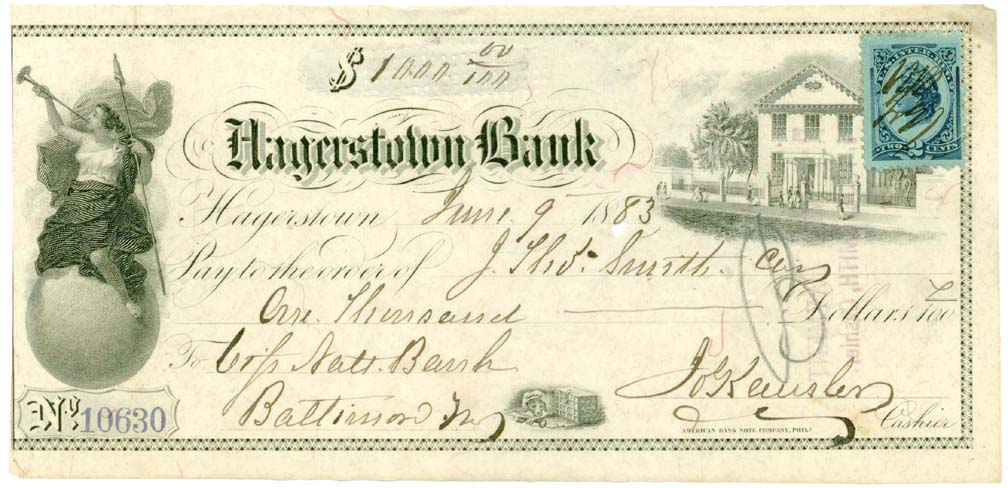 $ 1000 00/100
U.S. INTER. REV.
TWO 2 CENTS
Hagerstown Bank
Hagerstown, June 9 1883
Pay to the order of J. Thos. Smith Cas
One Thousand Dollars 100
To Natl. Bank
Baltimore Md
No 10630
Cashier
AMERICAN BANK NOTE COMPANY, PHILA.